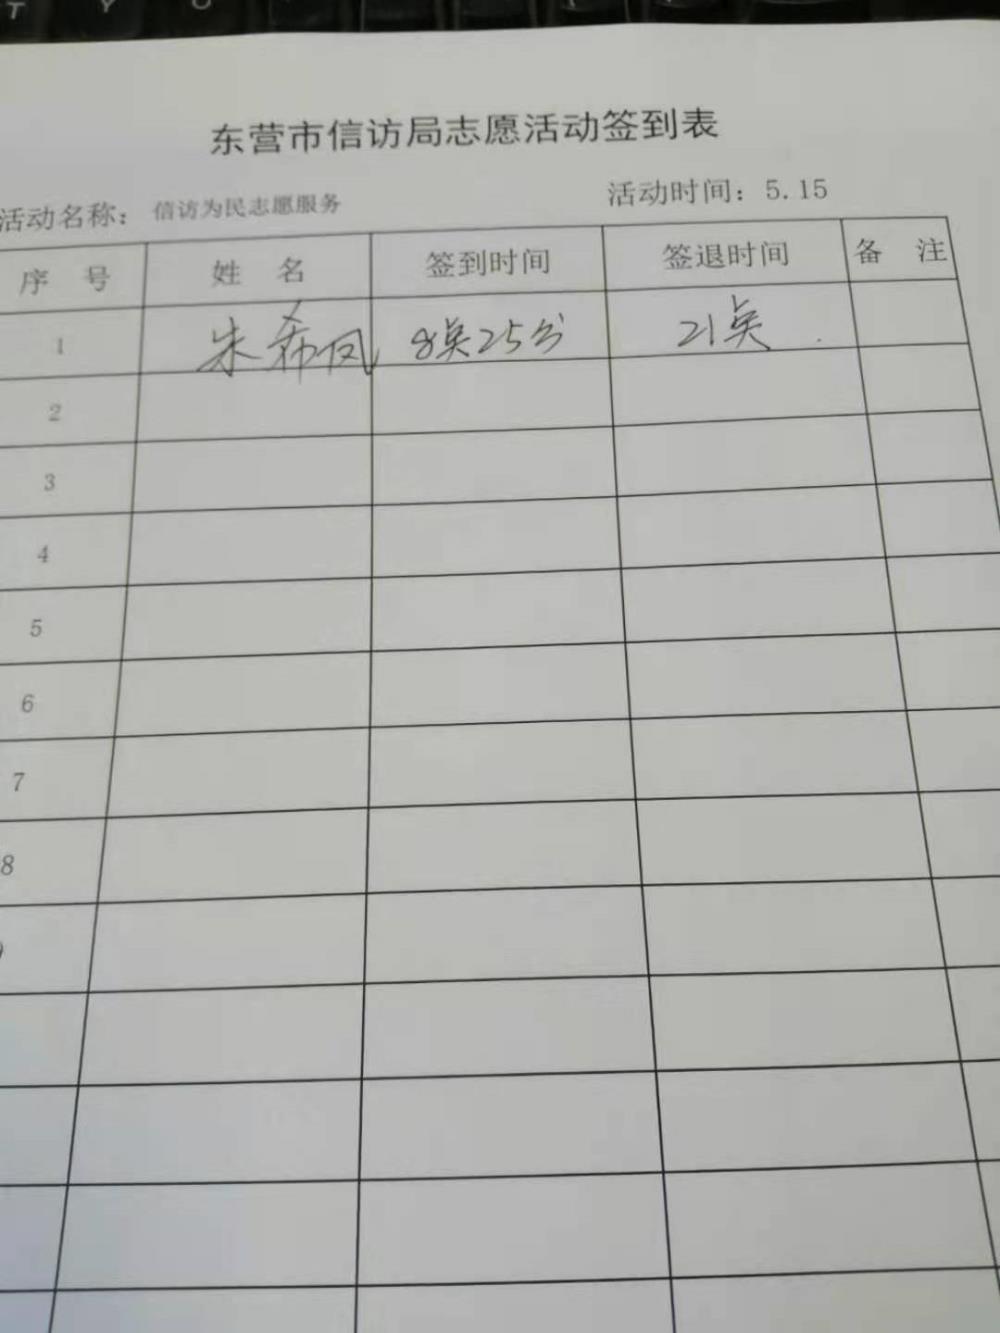 T Y U
东营市信访局志愿活动签到表
活动名称：信访为民志愿服务 活动时间：5.15
序 号 姓 名 签到时间 签退时间 备 注
1 朱希凤 8点25分 21点
2
3
4
5
6
7
8